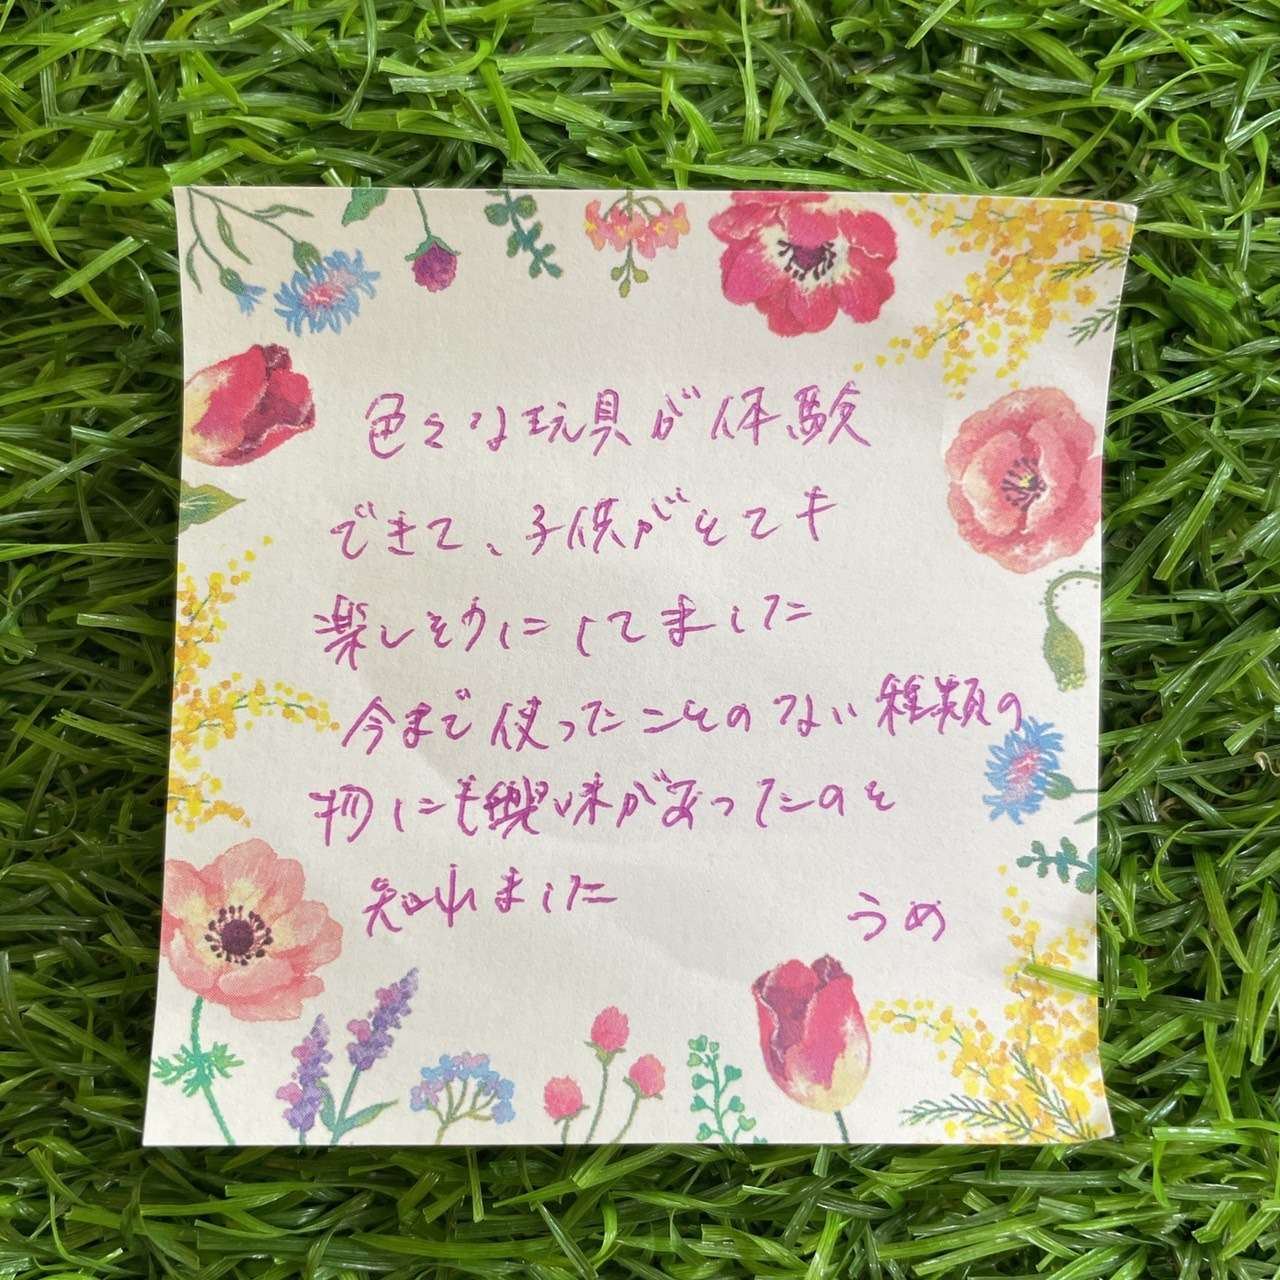 色々な玩具が体験
できて、子供がとても
楽しそうにしてました
今まで使ったことのない種類の
物にも興味があったのを
知れました
うめ